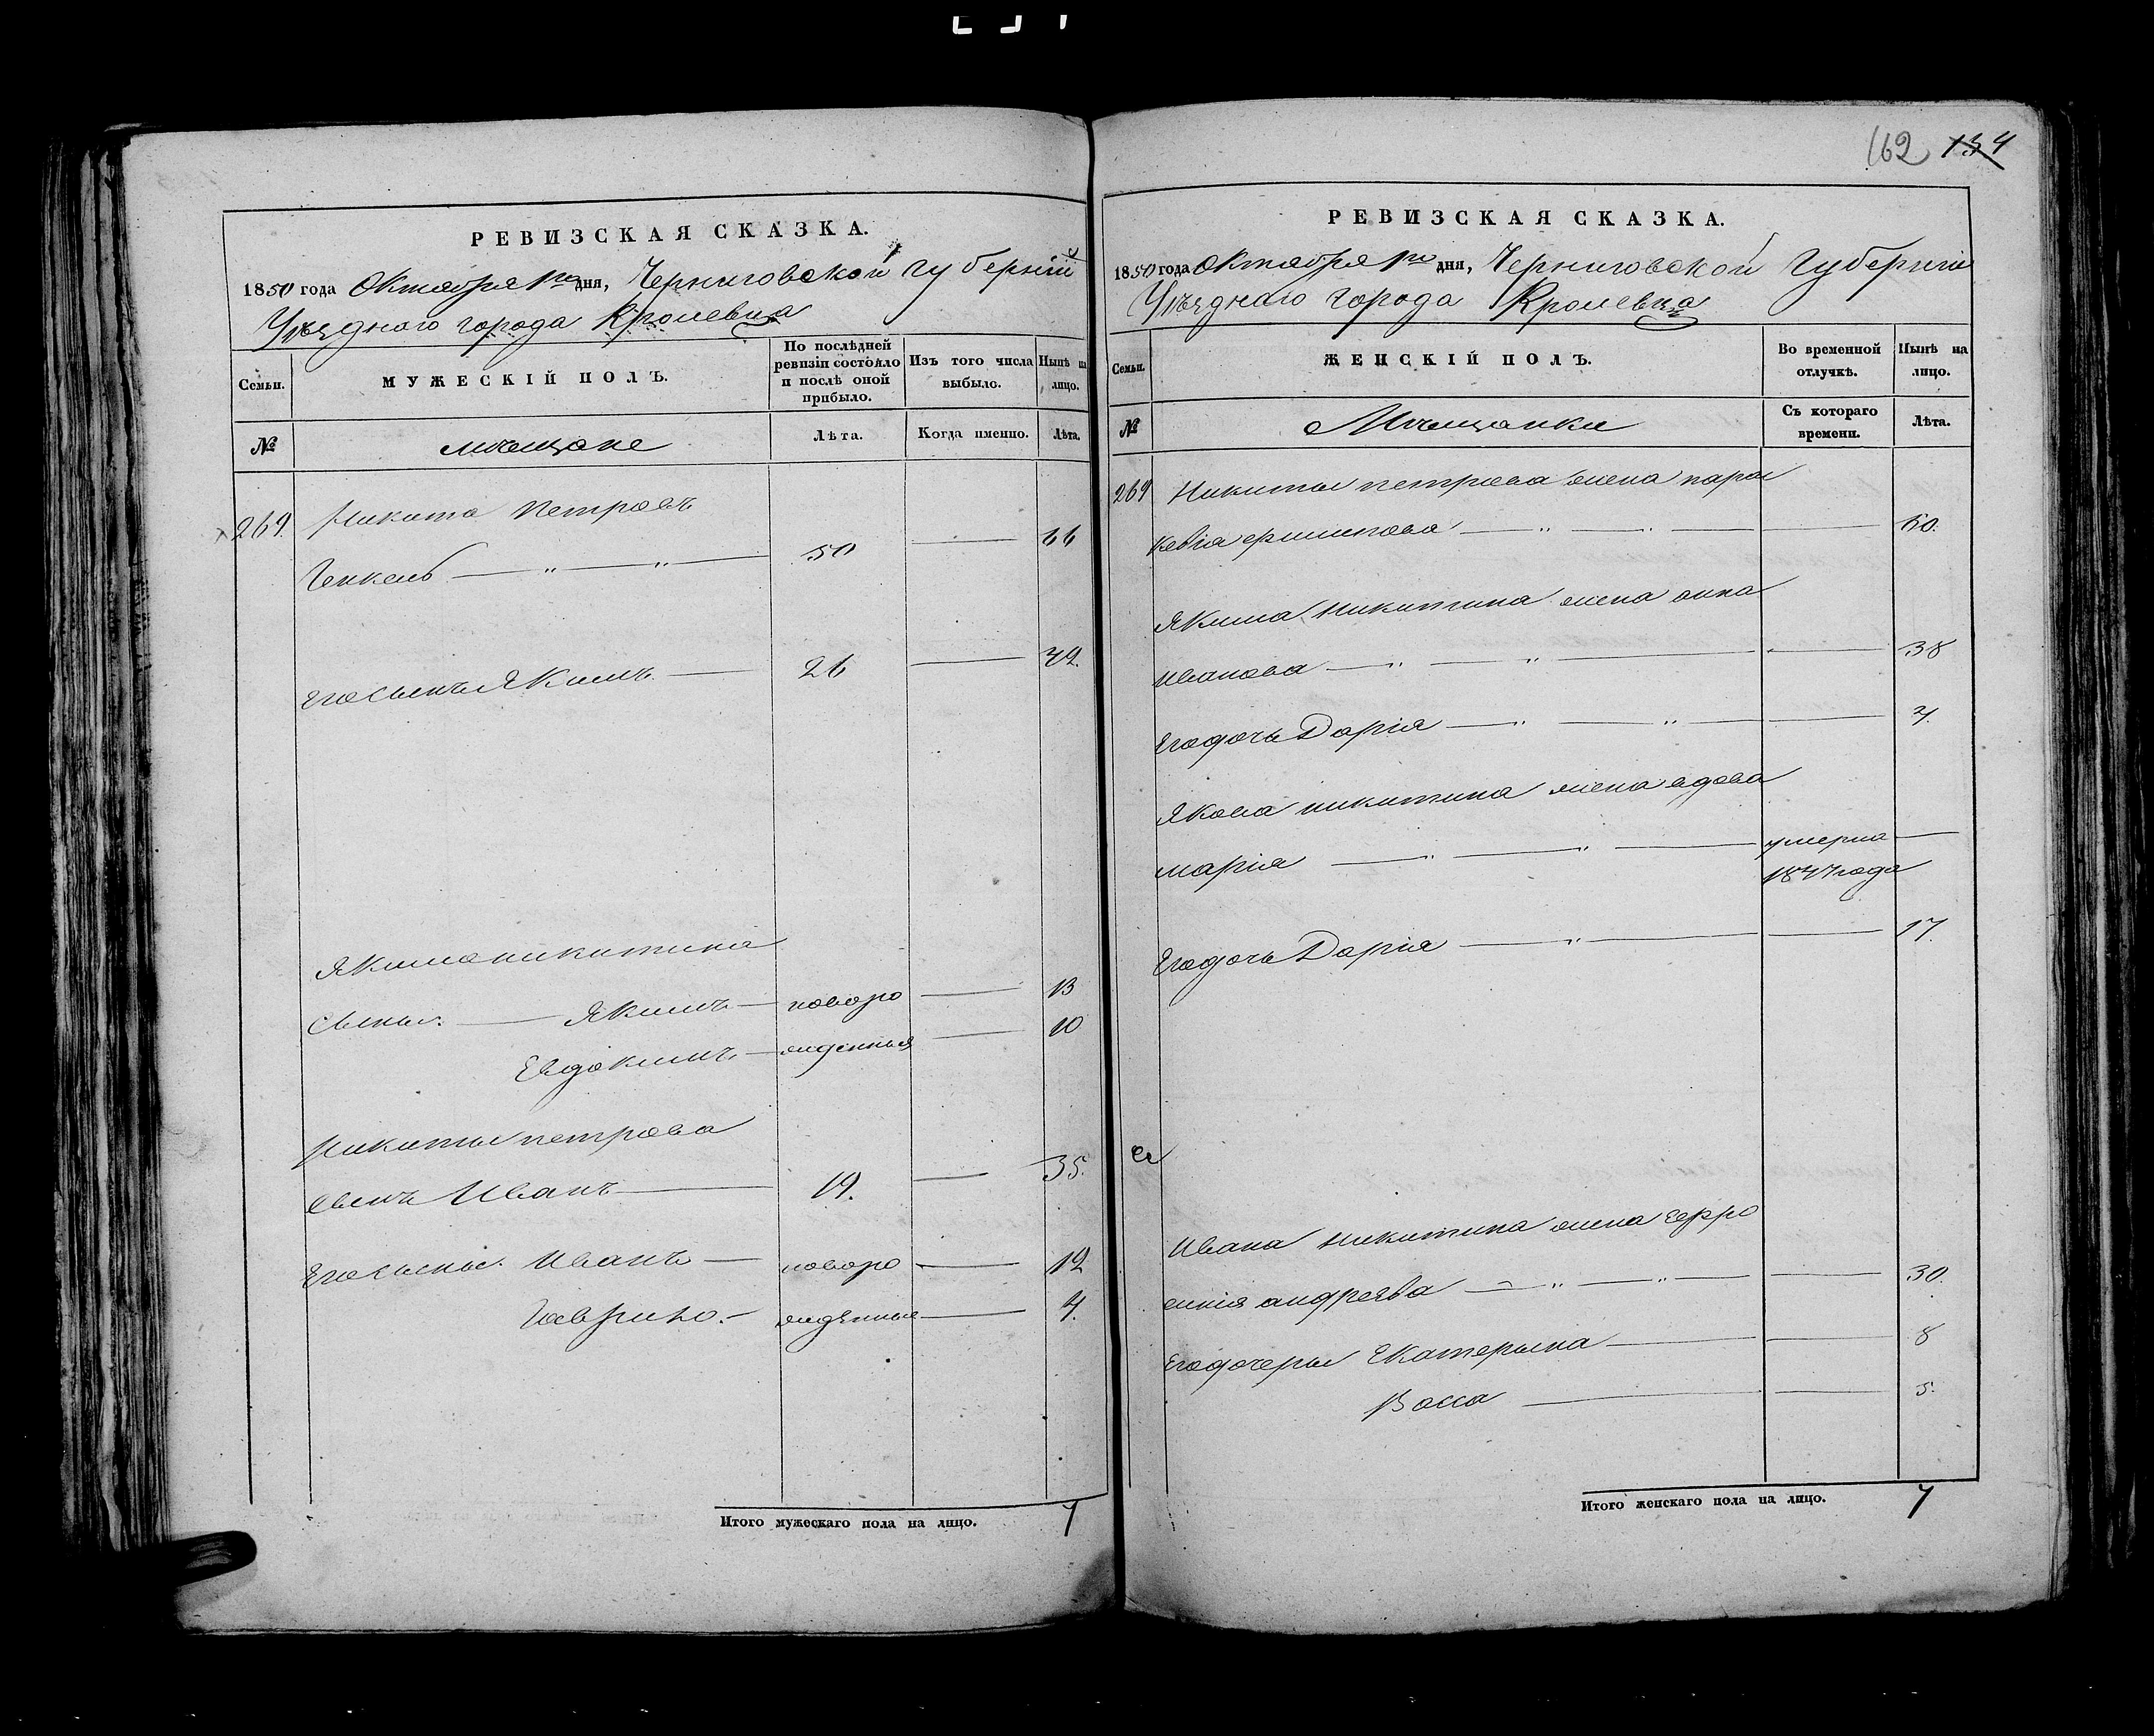 162 134
РЕВИЗСКАЯ СКАЗКА.
1850 года Октября 1го дня, Черниговской губерніи
Уѣзднаго города Кролевца
Семьи.
МУЖЕСКІЙ ПОЛЪ.
По послѣдней ревизіи состояло и послѣ оной прибыло.
Изъ того числа выбыло.
Нынѣ на лицо.
№
мѣщане
Лѣта.
Когда именно.
Лѣта.
269. Никита Петровъ
50 66
Его сынъ Якимъ 26 42.
Якима никитина
Сыны. Якимъ новоро 13
Евдокимъ жденныя 10
Никиты петрова
сынъ Иванъ 19. 35.
Его сыны. Иванъ новоро 12
Гаврило. жденные 4.
Итого мужескаго пола на лицо. 7
РЕВИЗСКАЯ СКАЗКА.
1850 года Октября 1го дня, Черниговской Губерніи
Уѣзднаго города Кролевца
Семьи.
ЖЕНСКІЙ ПОЛЪ.
Во временной отлучкѣ.
Нынѣ на лицо.
№
Мѣщанки
Съ котораго времени.
Лѣта.
269 Никиты петрова жена пара
кевіа 60.
Якима Никитина жена анна
Иванова 38
Его дочь Дарія
Якова никитина жена вдова
марія умерла
1847 года
Его дочь Дарія 17.
Ивана Никитина жена евфро
синія андреева 30.
Его дочеры Екатерына 8
Васса 5.
Итого женскаго пола на лицо. 7